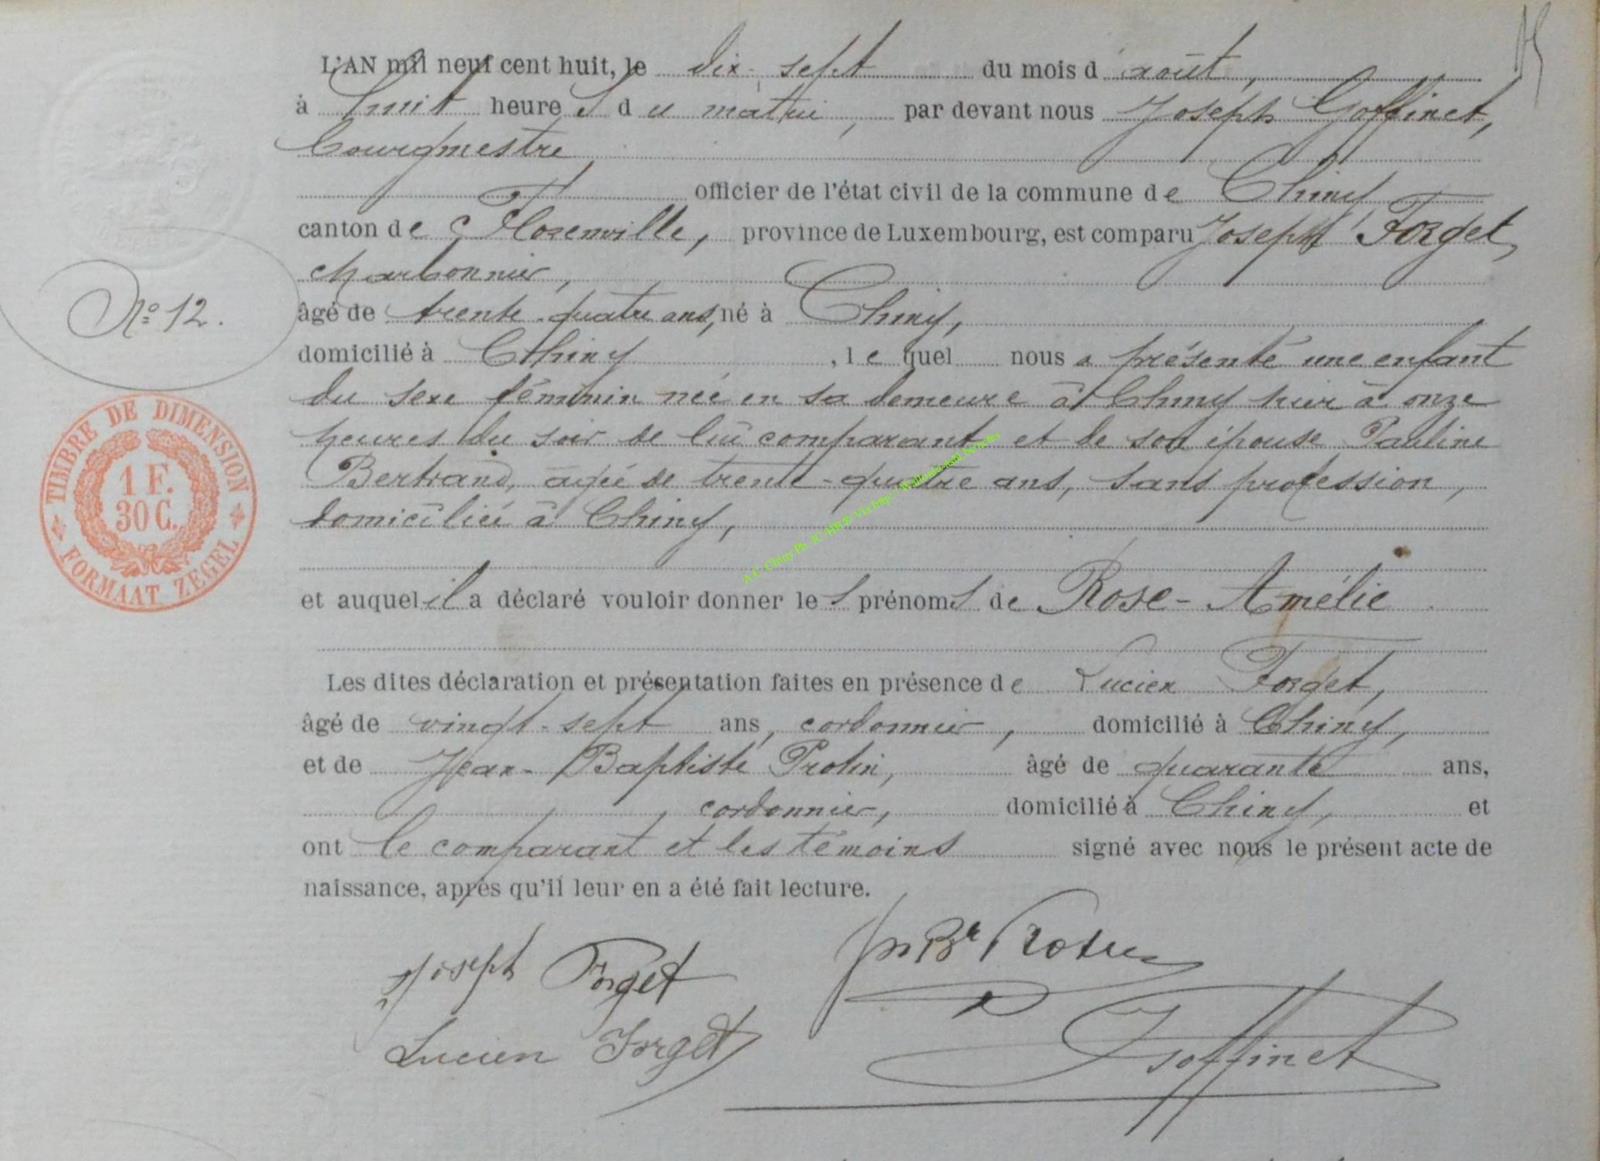 L'AN mil neuf cent huit, le dix-sept du mois d'août,
à huit heures du matin, par devant nous Joseph Goffinet,
Bourgmestre,
officier de l'état civil de la commune de Chiny
canton de Florenville, province de Luxembourg, est comparu Joseph Forget,
charbonnier,
âgé de trente-quatre ans, né à Chiny,
domicilié à Chiny, lequel nous a présenté une enfant
du sexe féminin née en sa demeure à Chiny hier à onze
heures du soir de lui comparant et de son épouse Pauline
Bertrand, agée de trente-quatre ans, sans profession,
domiciliée à Chiny,
et auquel il a déclaré vouloir donner les prénoms de Rose-Amélie
Les dites déclaration et présentation faites en présence de Lucien Forget,
âgé de vingt-sept ans, cordonnier, domicilié à Chiny,
et de Jean-Baptiste Protin, âgé de quarante ans,
cordonnier, domicilié à Chiny, et
ont le comparant et les témoins signé avec nous le présent acte de
naissance, après qu'il leur en a été fait lecture.
Joseph Forget
Lucien Forget
Jn Bte Protin
J Goffinet
No 12.
TIMBRE DE DIMENSION
1 F.
30 C.
FORMAAT ZEGEL